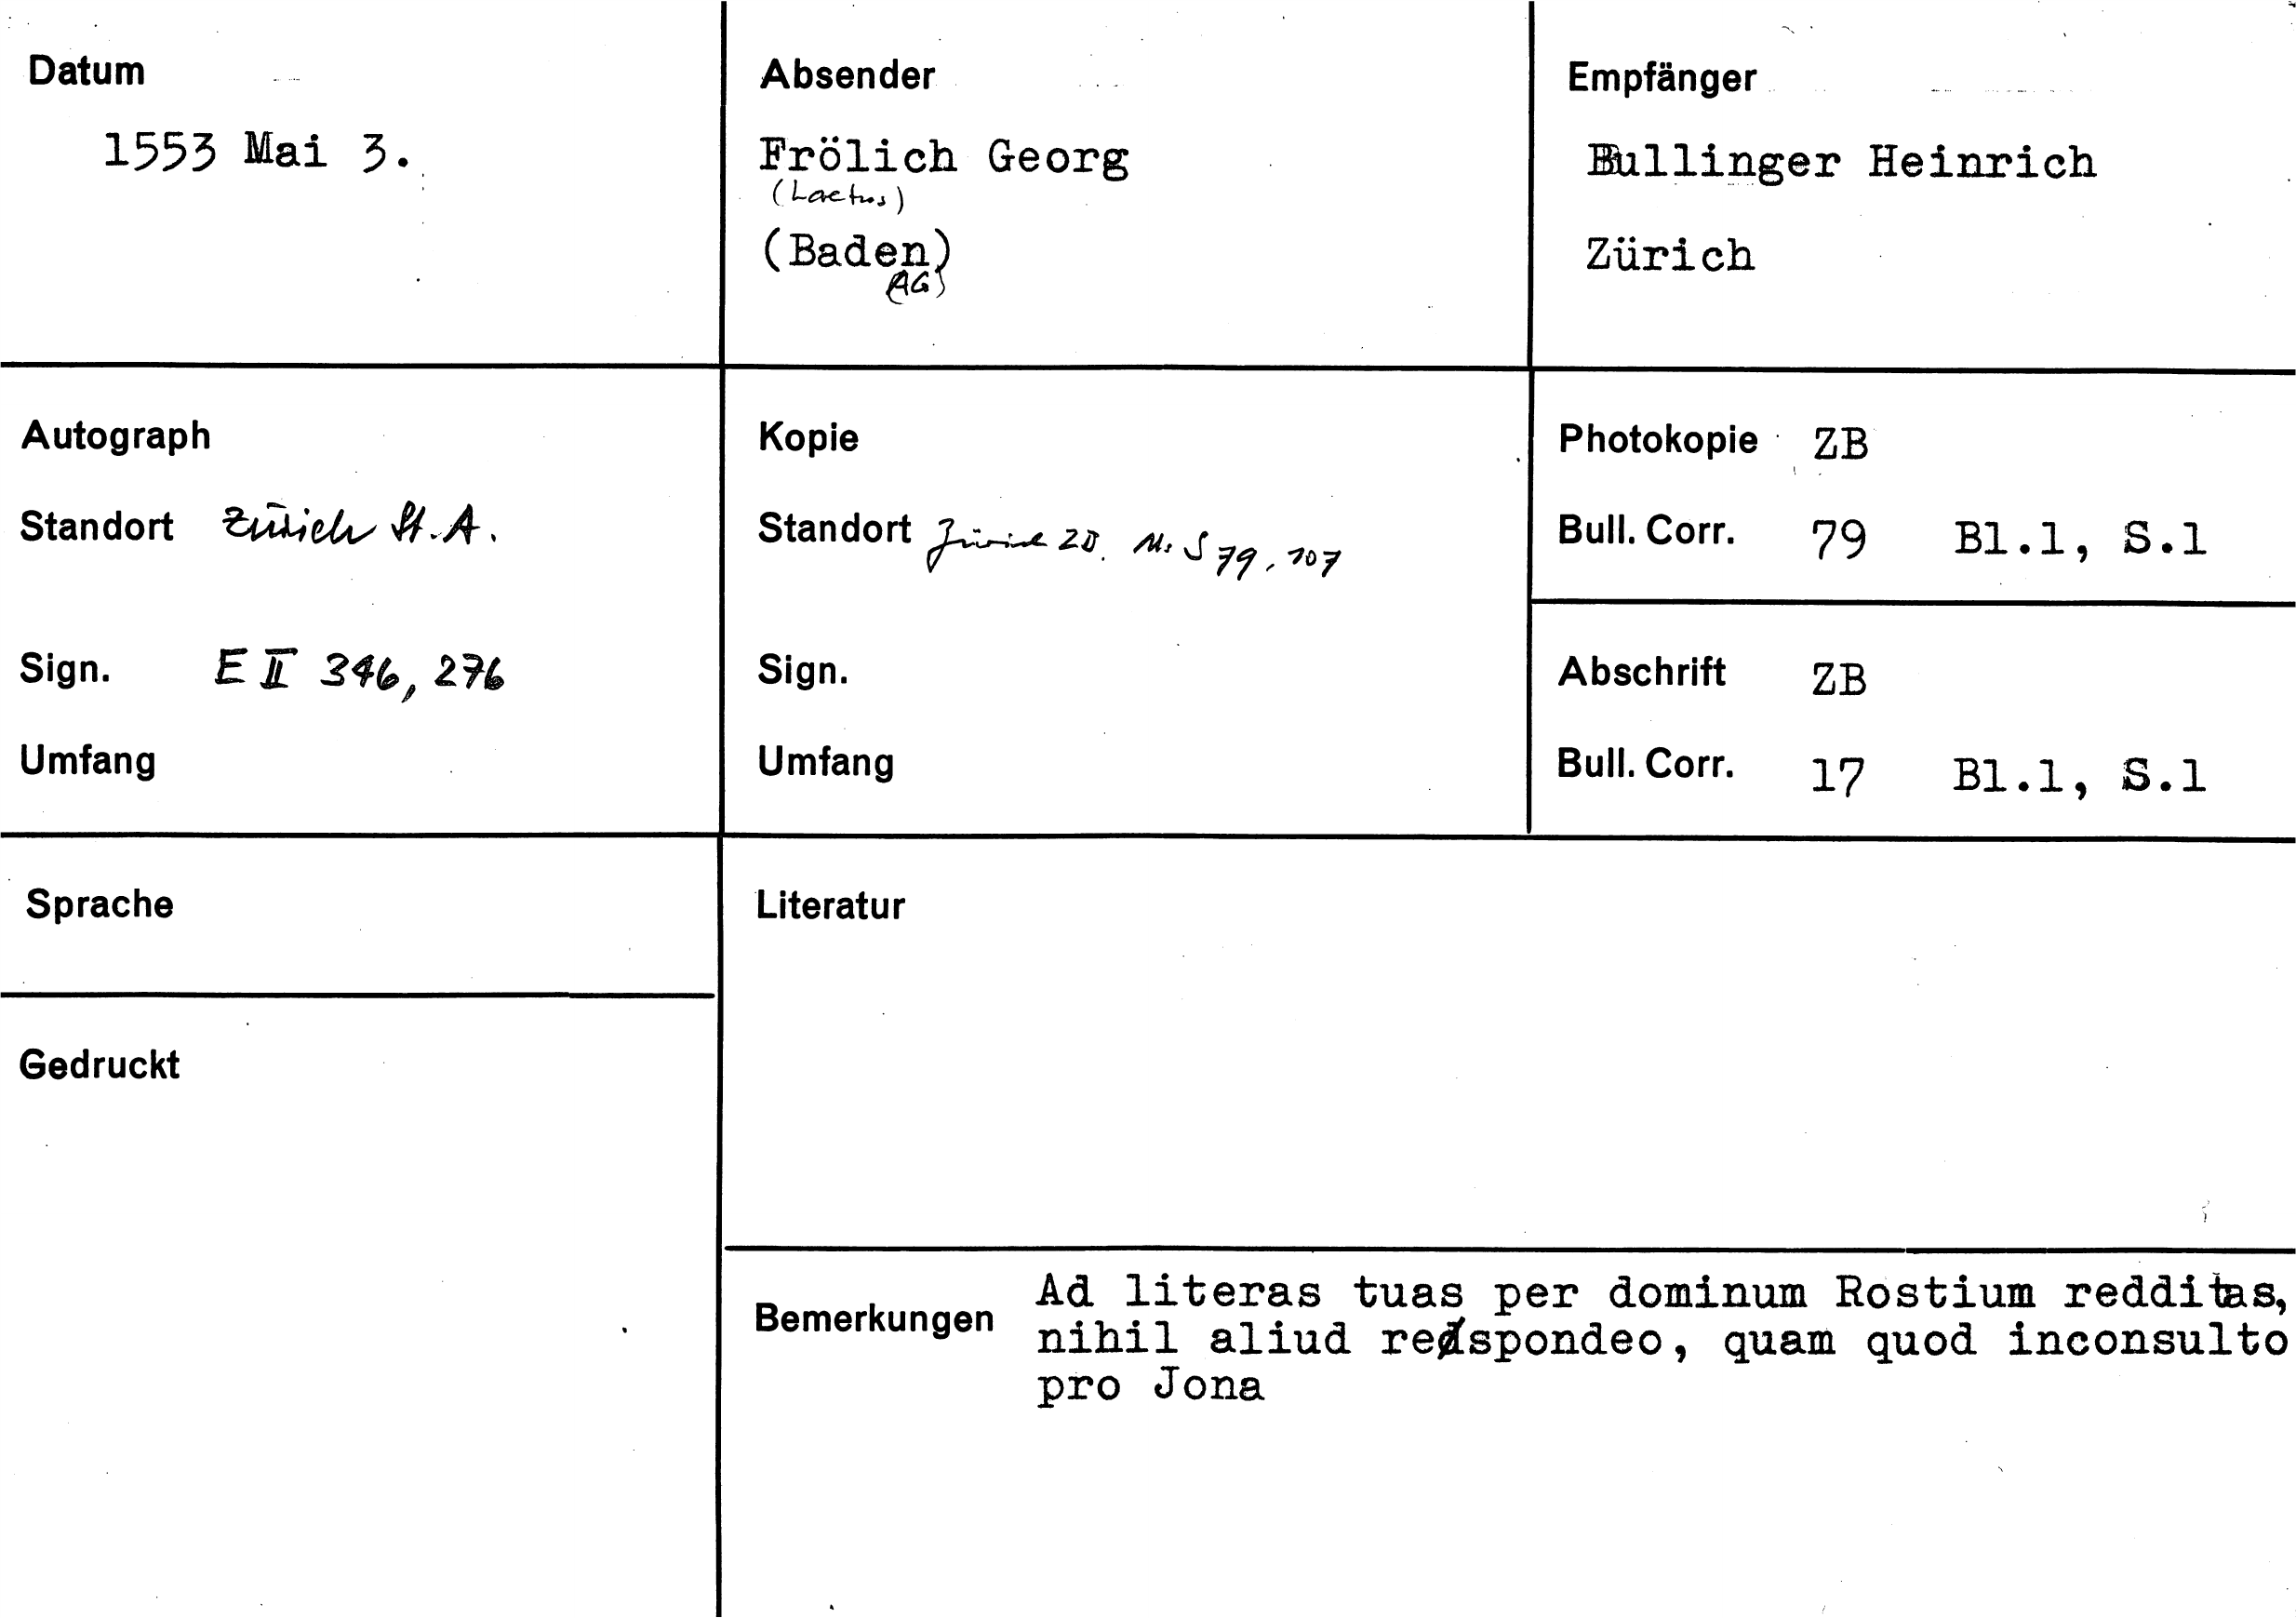 Datum
1553 Mai 3.
Absender
Frölich Georg
(Laetus)
(Baden)
(AG)
Empfänger
Bullinger Heinrich
Zürich
Autograph
Standort Zürich St.A.
Sign. E II 346, 276
Umfang
Kopie
Standort Zürich ZB. Ms S 79, 107
Sign.
Umfang
Photokopie ZB
Bull. Corr. 79 Bl.1, S.1
Abschrift ZB
Bull. Corr. 17 Bl.1, S.1
Sprache
Literatur
Gedruckt
Bemerkungen
Ad literas tuas per dominum Rostium redditas,
nihil aliud respondeo, quam quod inconsulto
pro Jona